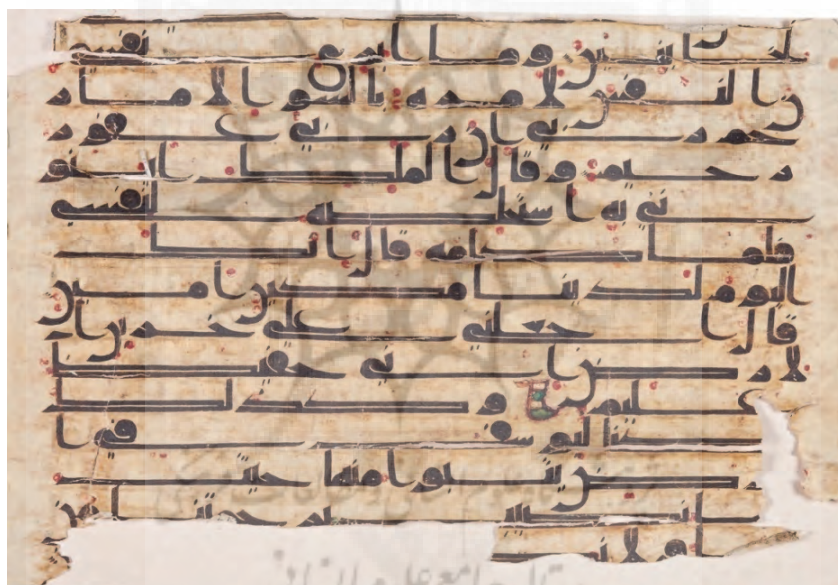 لخاينين وما ابرى نفسي
ان النفس لامره بالسو الا ما ر
حم ربي ان ربي غفور
رحيم وقال الملك ايتو
ني به استخلصه لنفسي
فلما كلمه قال انك
اليوم لدينا مكين امين
قال اجعلني على خزين ا
لارض اني حفيظ
عليم وكذلك
مكنا ليوسف في ا
لارض يتبوا منها حيث
يشا نصيب برحمتنا من
نشا ولا نضيع